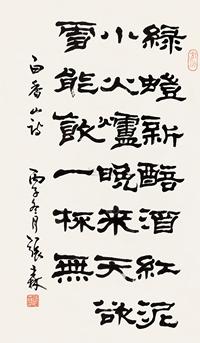 綠螘新醅酒紅泥
小火爐晚来天欲
雪能飲一杯無
白香山詩 丙子冬月張森